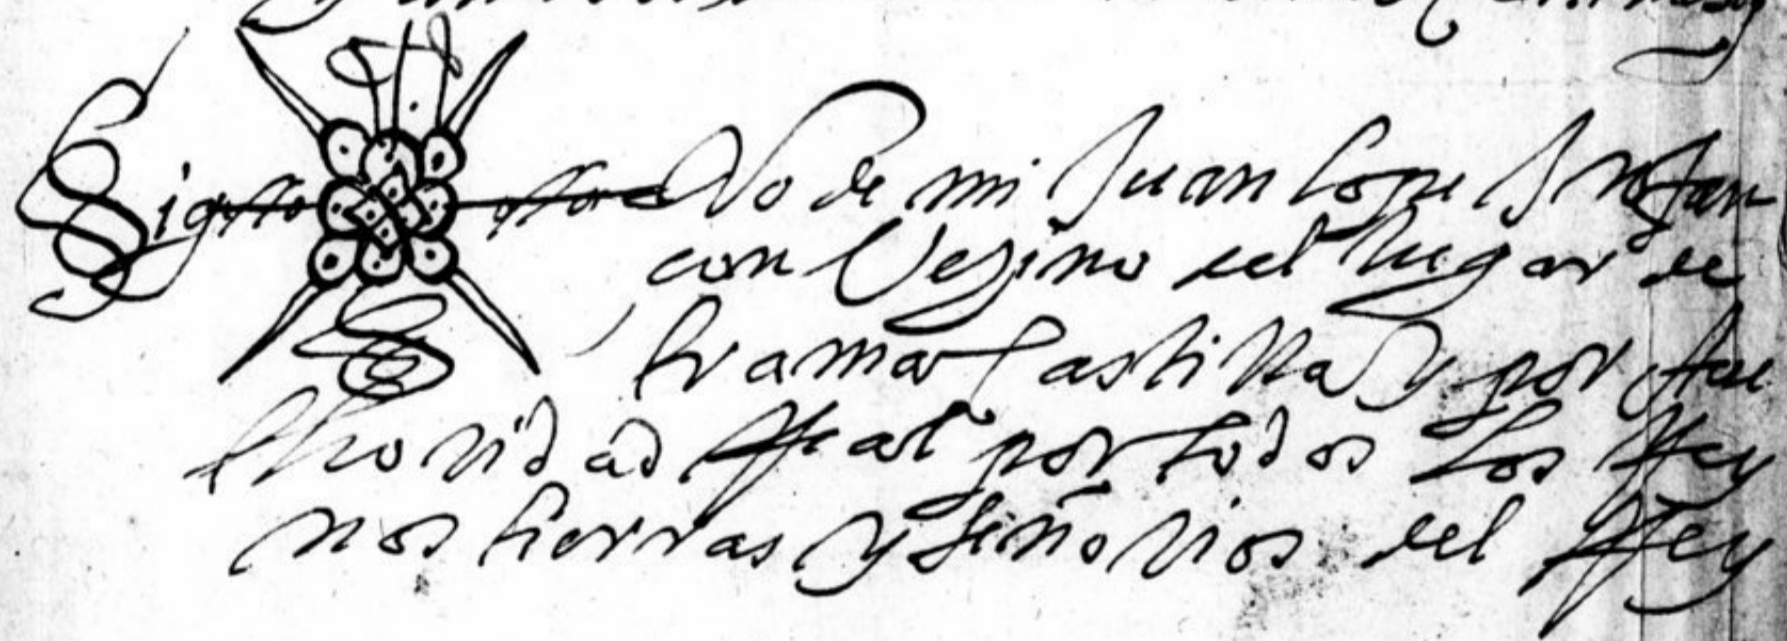 Sig no de mi Juan Lopez
con Vezino del lugar de
tramaCastilla y por Au
thoridad Real por todos los Rey
nos tierras y señorios del Rey